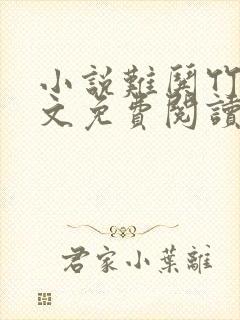 小說難哭竹
文免費閱讀
君家小葉離